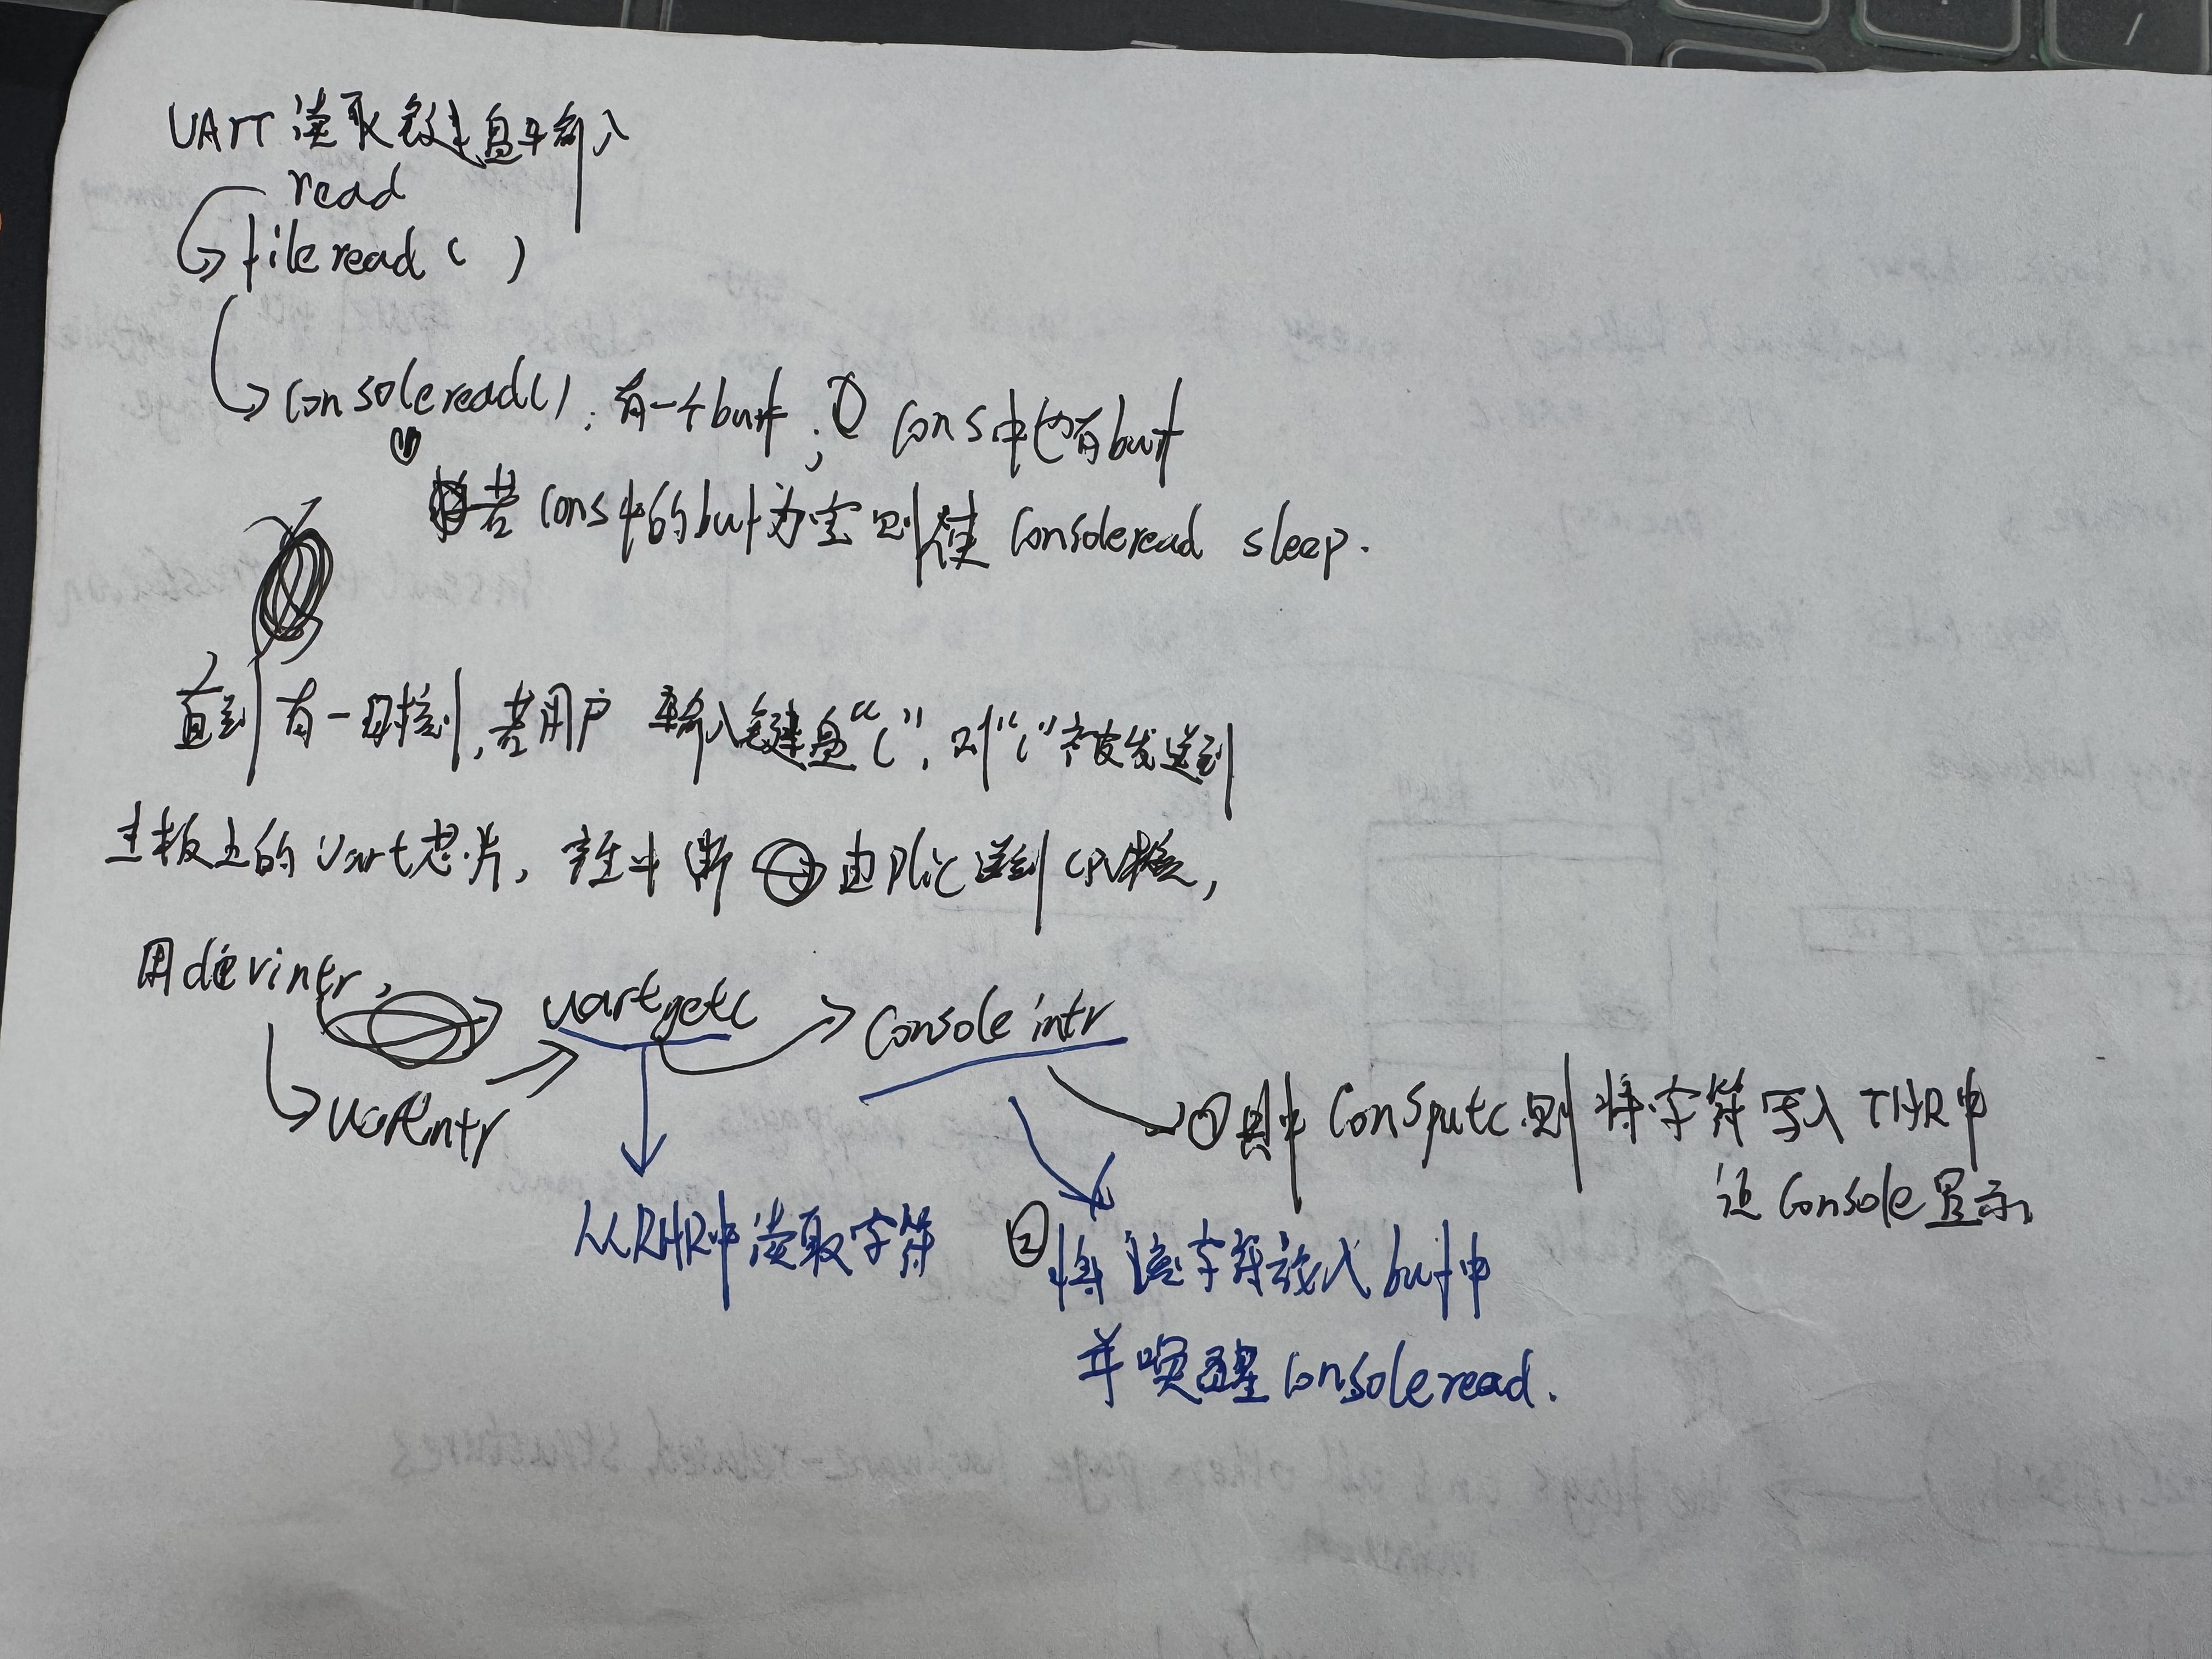 UART 读取键盘输入
read
fileread ( )
consoleread(): 有一个buf; ① cons中也有buf
若 cons中的buf为空则使 consoleread sleep.
直到有一时刻, 若用户 输入键盘“l”, 则“l”被发送到
主板上的 Uart芯片, 产生中断 由Plic 送到 CPU核,
用devintr,
uartgetc
Console intr
uartintr
① 用 Consputc 则 将字符写入 THR中
Console显示
从RHR中读取字符
② 将该字符放入 buf中
并唤醒 consoleread.